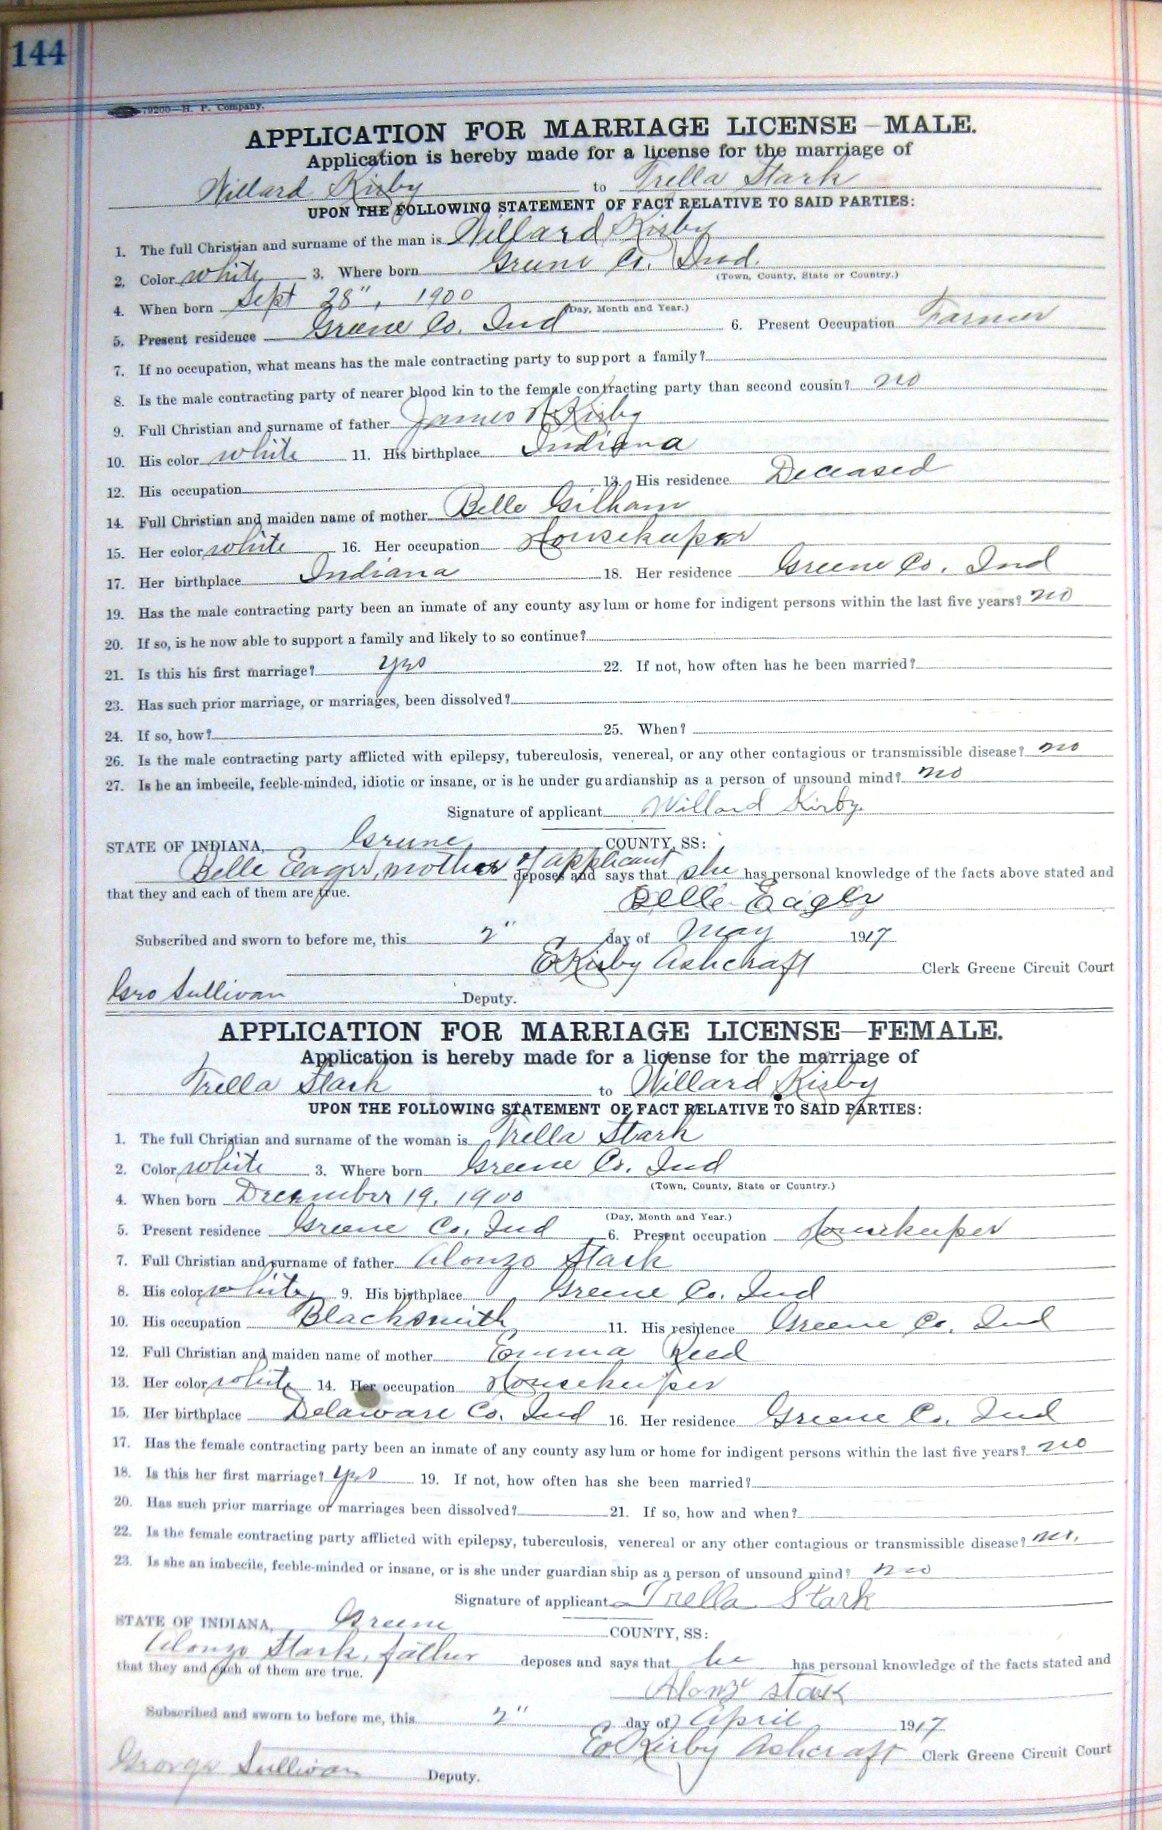 144
79200—H. P. Company.
APPLICATION FOR MARRIAGE LICENSE—MALE.
Application is hereby made for a license for the marriage of
Willard Kirby to Trella Stark
UPON THE FOLLOWING STATEMENT OF FACT RELATIVE TO SAID PARTIES:
1. The full Christian and surname of the man is Willard Kirby
2. Color white 3. Where born Greene Co. Ind.
(Town, County, State or Country.)
4. When born Sept 28", 1900
(Day, Month and Year.)
5. Present residence Greene Co. Ind 6. Present Occupation Farmer
7. If no occupation, what means has the male contracting party to support a family?
8. Is the male contracting party of nearer blood kin to the female contracting party than second cousin? no
9. Full Christian and surname of father James A Kirby
10. His color white 11. His birthplace Indiana
12. His occupation 13. His residence Deceased
14. Full Christian and maiden name of mother Belle Gilham
15. Her color white 16. Her occupation Housekeeper
17. Her birthplace Indiana 18. Her residence Greene Co. Ind
19. Has the male contracting party been an inmate of any county asylum or home for indigent persons within the last five years? no
20. If so, is he now able to support a family and likely to so continue?
21. Is this his first marriage? yes 22. If not, how often has he been married?
23. Has such prior marriage, or marriages, been dissolved?
24. If so, how? 25. When?
26. Is the male contracting party afflicted with epilepsy, tuberculosis, venereal, or any other contagious or transmissible disease? no
27. Is he an imbecile, feeble-minded, idiotic or insane, or is he under guardianship as a person of unsound mind? no
Signature of applicant Willard Kirby.
STATE OF INDIANA, Greene COUNTY, SS:
Belle Eagler, mother of applicant deposes and says that she has personal knowledge of the facts above stated and
that they and each of them are true.
Belle Eagler
Subscribed and sworn to before me, this 2" day of May 1917
E Kirby Ashcraft Clerk Greene Circuit Court
Geo Sullivan Deputy.
APPLICATION FOR MARRIAGE LICENSE—FEMALE.
Application is hereby made for a license for the marriage of
Trella Stark to Willard Kirby
UPON THE FOLLOWING STATEMENT OF FACT RELATIVE TO SAID PARTIES:
1. The full Christian and surname of the woman is Trella Stark
2. Color white 3. Where born Greene Co. Ind
(Town, County, State or Country.)
4. When born December 19, 1900
(Day, Month and Year.)
5. Present residence Greene Co. Ind 6. Present occupation Housekeeper
7. Full Christian and surname of father Alonzo Stark
8. His color white 9. His birthplace Greene Co. Ind
10. His occupation Blacksmith 11. His residence Greene Co. Ind
12. Full Christian and maiden name of mother Emma Reed
13. Her color white 14. Her occupation Housekeeper
15. Her birthplace Delaware Co. Ind 16. Her residence Greene Co. Ind
17. Has the female contracting party been an inmate of any county asylum or home for indigent persons within the last five years? no
18. Is this her first marriage? yes 19. If not, how often has she been married?
20. Has such prior marriage or marriages been dissolved? 21. If so, how and when?
22. Is the female contracting party afflicted with epilepsy, tuberculosis, venereal or any other contagious or transmissible disease? no.
23. Is she an imbecile, feeble-minded or insane, or is she under guardianship as a person of unsound mind? no
Signature of applicant Trella Stark
STATE OF INDIANA, Greene COUNTY, SS:
Alonzo Stark, father deposes and says that he has personal knowledge of the facts stated and
that they and each of them are true.
Alonzo Stark
Subscribed and sworn to before me, this 2" day of April 1917
E Kirby Ashcraft Clerk Greene Circuit Court
George Sullivan Deputy.